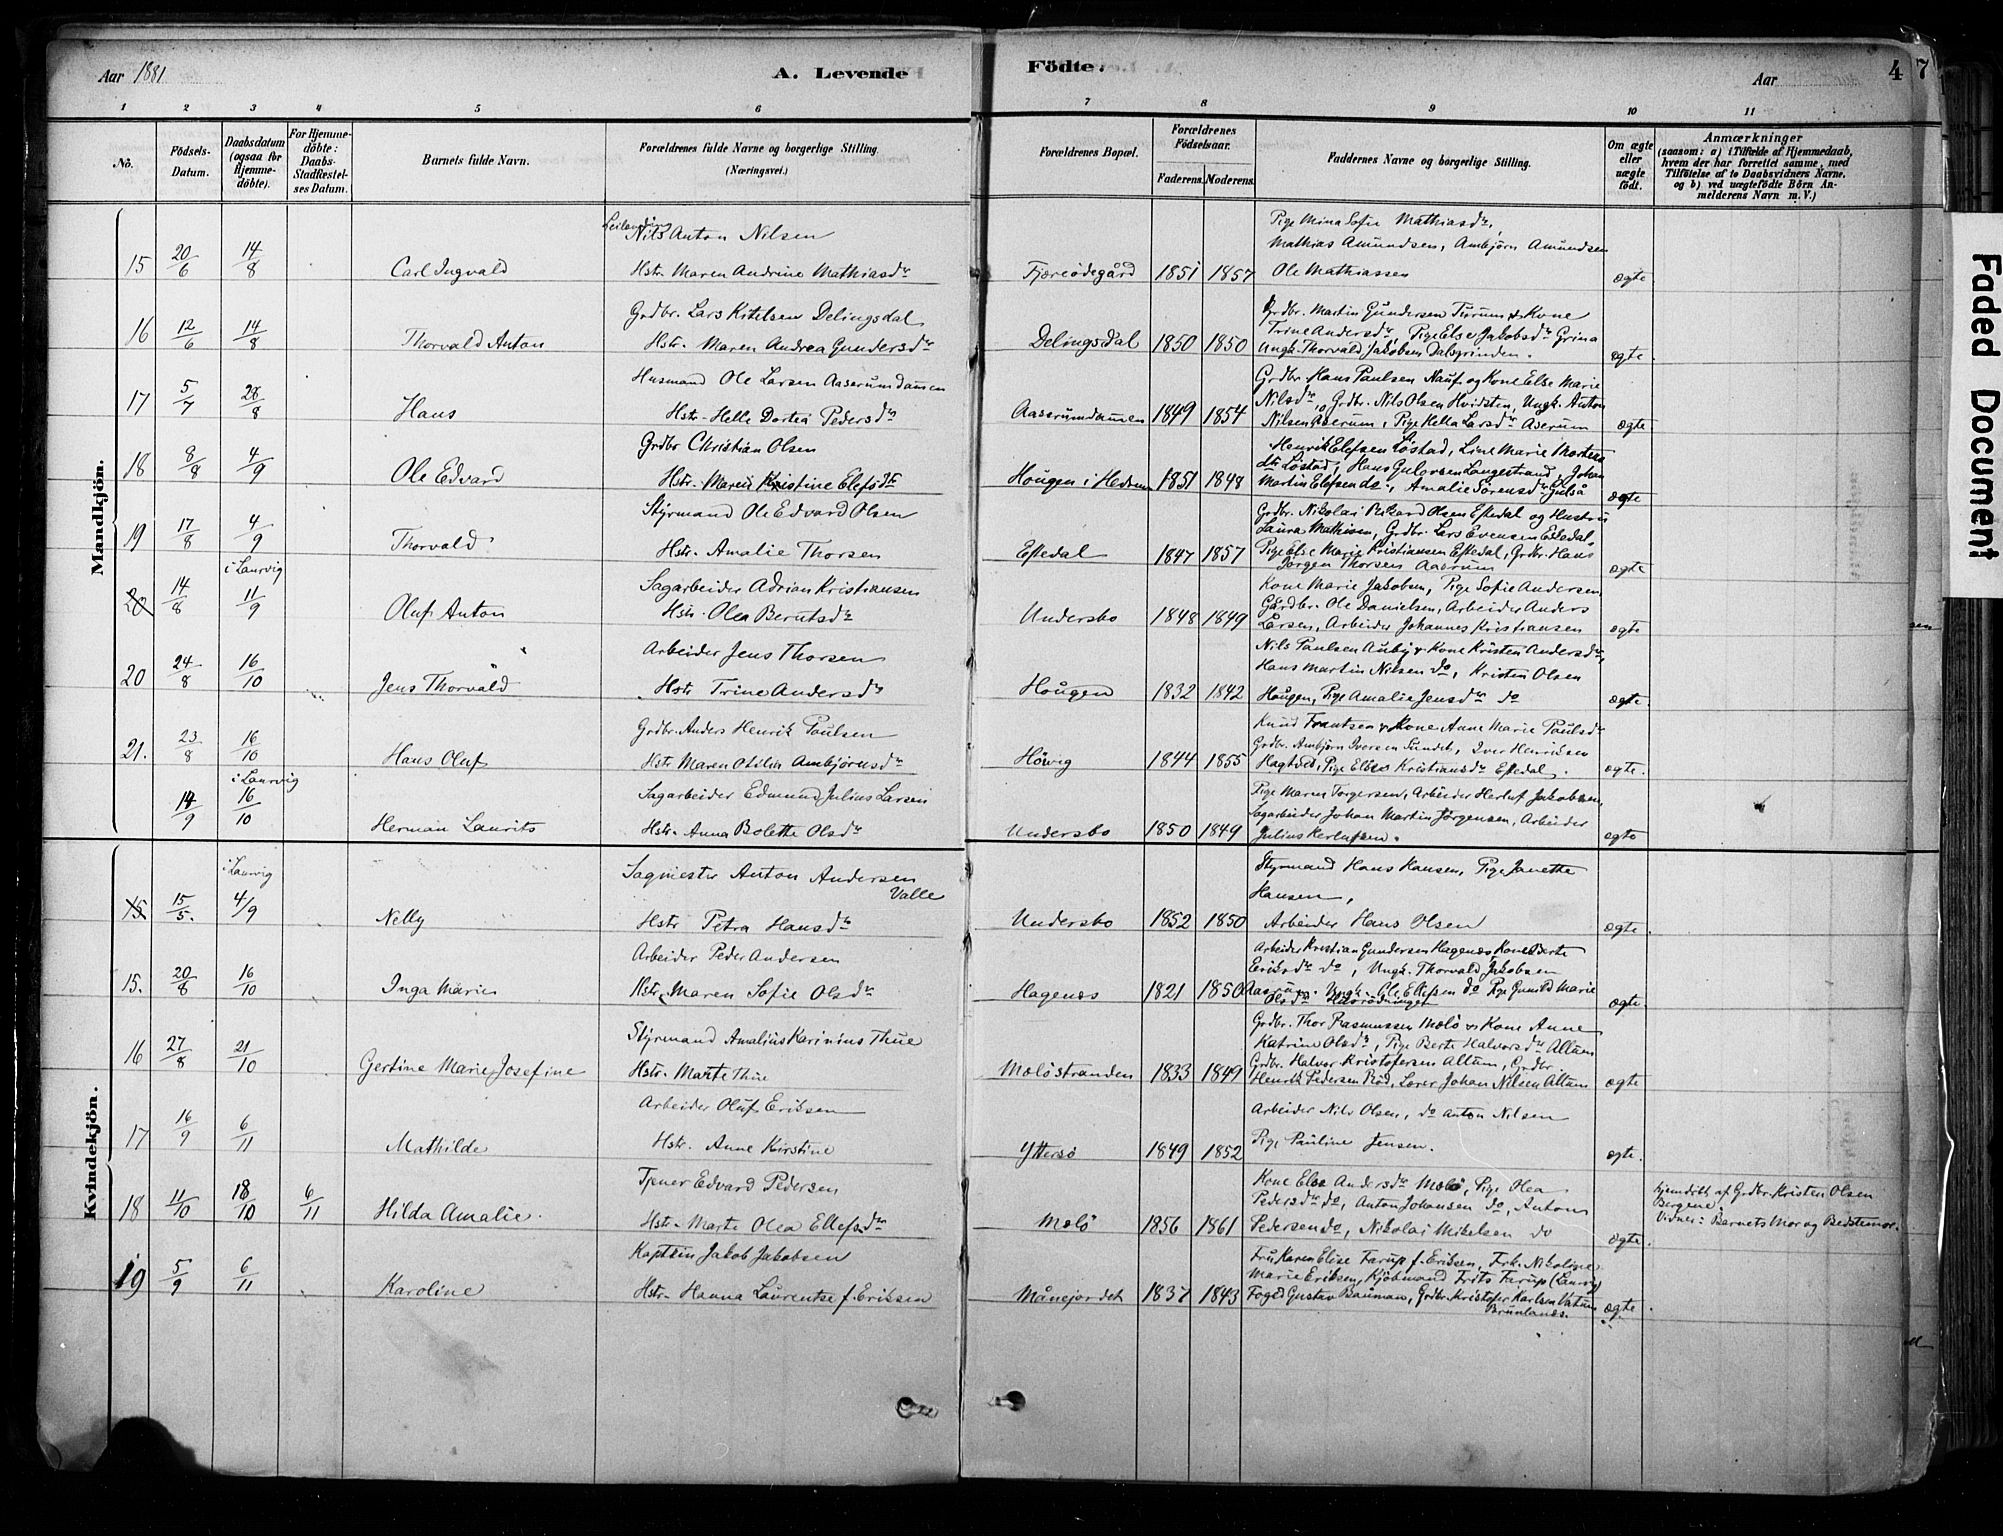 Aar 1881
A. Levende Födte.
Aar
4 7
1 2 3 4 5 6 7 8 9 10 11
No.
Födsels-Datum.
Daabsdatum (ogsaa for Hjemme-döbte).
For Hjemme-döbte: Daabs-Stadfæstel-ses Datum.
Barnets fulde Navn.
Forældrenes fulde Navne og borgerlige Stilling. (Næringsvei.)
Forældrenes Bopæl.
Forældrenes Födselsaar.
Faderens. Moderens.
Faddernes Navne og borgerlige Stilling.
Om ægte eller uægte födt.
Anmærkninger
(saasom: a) i Tilfælde af Hjemmedaab, hvem der har forrettet samme, med Tilföielse af to Daabsvidners Navne. og b) ved uægtefödte Börn An-melderens Navn m. V.)
Mandkjön.
15 20/6 14/8 Carl Ingvald
Leilending Nils Anton Nilsen
Hstr. Maren Andrine Mathiasdr
Fjæreödegård 1851 1857
Pige Mina Sofie Mathiasdr,
Mathias Amundsen, Ambjörn Amundsen
Ole Mathiassen
ægte
16 12/6 14/8 Thorvald Anton
Grdbr. Lars Kittelsen Delingsdal
Hstr. Maren Andrea Gundersdr
Delingsdal 1850 1850
Grdbr. Martin Gundersen Furum & Kone
Trine Andersdr, Pige Else Jakobsdr Grina
Ungk. Thorvald Jakobsen Dalsgrinden.
ægte.
17 5/7 28/8 Hans
Husmand Ole Larsen Aaserumdamen
Hstr. Helle Dortea Pedersdr
Aaserumdamen 1849 1854
Grdbr. Hans Paulsen Nauf og Kone Else Marie
Nilsdr, Grdbr. Nils Olsen Hvidsten, Ungk. Anton
Nilsen Aserum, Pige Hella Larsdr Aserum
ægte
18 8/8 4/9 Ole Edvard
Grdbr Christian Olsen
Hstr. Maren Kristine Elefsdr
Hougen i Hedrum 1851 1848
Henrik Elefsen Löstad, Line Marie Mortens
dtr Löstad, Hans Gulovsen Langestrand, Johan
Martin Elefsen do., Amalie Sörensdr Gulså
ægte
19 17/8 4/9 Thorvald
Styrmand Ole Edvard Olsen
Hstr. Amalie Thorsen
Eftedal 1847 1857
Grdbr. Nikolai Rikard Olsen Eftedal og Hustru
Laura Mathisen, Grdbr. Lars Evensen Eftedal,
Pige Else Marie Kristiansen Eftedal, Grdbr. Hans
Jørgen Thorsen Aaserum
ægte
20 14/8 i Laurvig 11/9 Oluf Anton
Sagarbeider Adrian Kristiansen
Hstr. Olea Berntsdr
Undersbo 1848 1849
Kone Marie Jakobsen, Pige Sofie Andersen
Gårdbr. Ole Danielsen, Arbeider Anders
Larsen, Arbeider Johannes Kristiansen
ægte
20 24/8 16/10 Jens Thorvald
Arbeider Jens Thorsen
Hstr Trine Andersdr
Hougen 1832 1842
Nils Paulsen Auby & Kone Kristen Andersdr,
Hans Martin Nilsen do, Kristen Olsen
Hougen, Pige Amalie Jensdr do
ægte.
21. 23/8 16/10 Hans Oluf
Grdbr. Anders Henrik Paulsen
Hstr. Maren Otilia Ambjörnsdr
Hövig 1844 1855
Knud Frantsen & Kone Anne Marie Paulsdr
Grdbr. Ambjörn Iversen Sundet, Iver Henriksen
Hagtvedt, Pige Else Kristiansdr Eftedal.
ægte.
14/9 i Laurvig 16/10 Herman Laurits
Sagarbeider Edmund Julius Larsen
Hstr. Anna Bolette Olsdr
Undersbo 1850 1849
Pige Maren Torgersen, Arbeider Herluf Jakobsen,
Sagarbeider Johan Martin Jörgensen, Arbeider
Julius Herlufsen.
ægte
Kvindekjön.
15 15/5. i Laurvig 4/9 Nelly
Sagmester Anton Andersen
Valle
Hstr Petra Hansdr
Undersbo 1852 1850
Styrmand Hans Hansen, Pige Janette
Hansen,
Arbeider Hans Olsen
ægte.
15. 20/8 16/10 Inga Marie
Arbeider Peder Andersen
Hstr. Maren Sofie Olsdr
Hagenæs 1821 1850
Arbeider Kristian Gundersen Hagenæs Kone Berte
Eriksdr do, Ungk. Thorvald Jakobsen
Aasrum. Ungk. Ole Ellefsen do Pige Gunild Marie
Olsdr
ægte.
16 27/8 21/10 Gertine Marie Josefine
Styrmand Amalius Karinius Thue
Hstr. Marte Thue
Melöstranden 1833 1849
Grdbr. Thor Rasmussen Melö & Kone Anne
Katrine Olsdr, Pige Berte Halvorsdr Altum
Grdbr. Halvor Kristofersen Altum, Grdbr.
Henrik Pedersen Röd, Lærer Johan Nilsen Altum
ægte
17 16/9 6/11 Mathilde
Arbeider Oluf Eriksen
Hstr. Anne Kirstine
Yttersö 1849 1852
Arbeider Nils Olsen, do Anton Nilsen
Pige Pauline Jensen.
ægte.
18 11/10 18/10 6/11 Hilda Amalie.
Tjener Edvard Pedersen
Hstr. Marte Olea Ellefsdr
Melö 1856 1861
Kone Else Andersdr Melö, Pige Olea
Pedersdr do, Anton Johansen do, Anton
Pedersen do, Nikolai Mikelsen do
ægte.
hjemdöbt af Grdbr. Kristen Olsen
Bergene.
Vidner: Barnets Mor og Bedstemor.
19 5/9 6/11 Karoline
Kaptein Jakob Jakobsen
Hstr. Hanna Laurentse f. Eriksen
Månejordet 1837 1843
Fru Karen Elise Farup f. Eriksen, Frk. Nikoline
Marie Eriksen, Kjöbmand Frits Farup (Laurvig)
Foged Gustav Bauman, Grdbr. Kristofer Karlsen Vatne
Brunlanæs.
ægte.
Faded Document